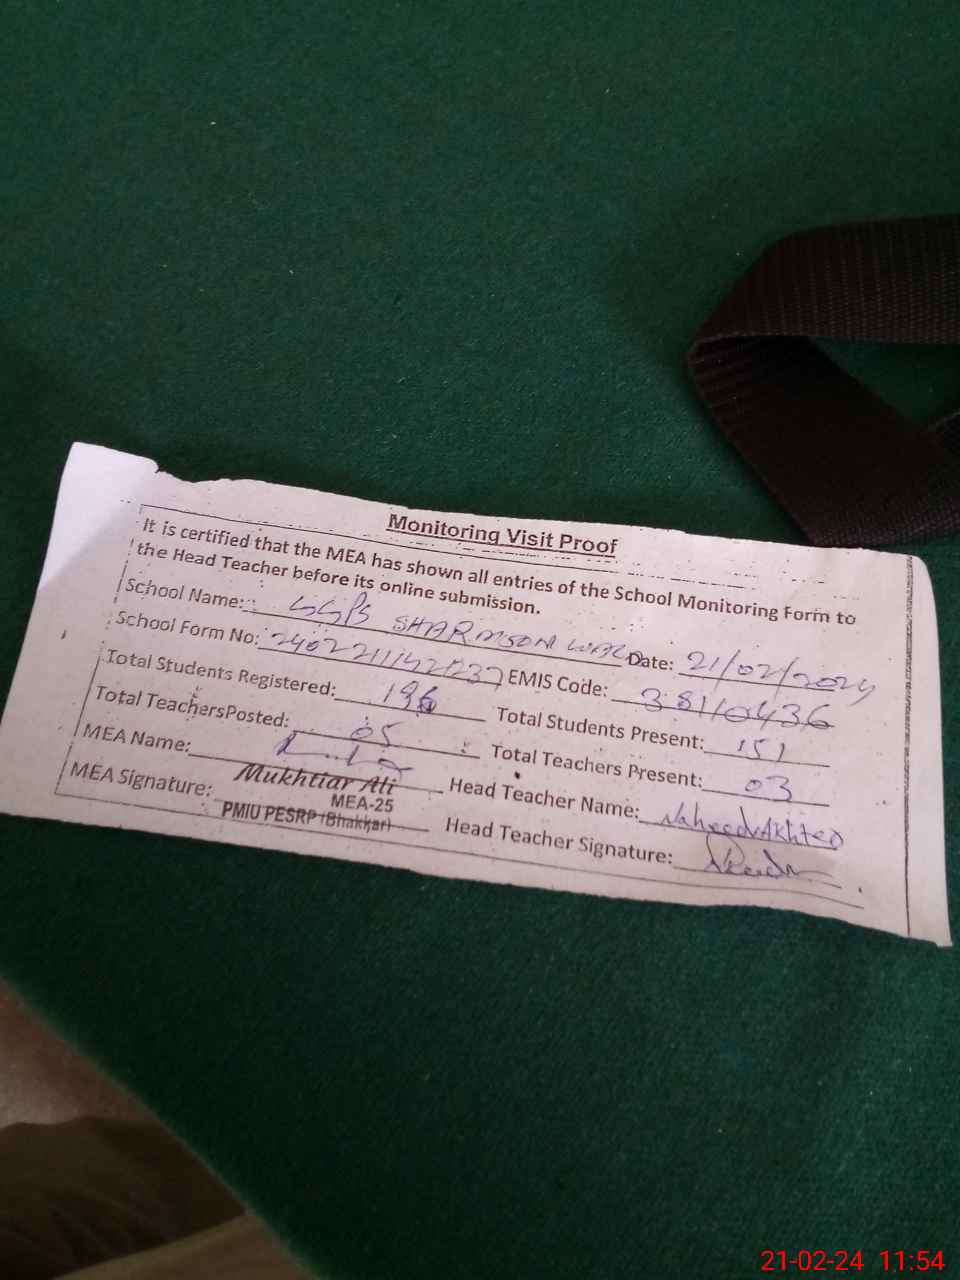 Monitoring Visit Proof
It is certified that the MEA has shown all entries of the School Monitoring Form to
the Head Teacher before its online submission.
School Name: GGPS SHAR Date: 21/02/2024
School Form No: EMIS Code: 38110436
Total Students Registered: 196 Total Students Present: 151
Total TeachersPosted: 05 Total Teachers Present: 03
MEA Name: Head Teacher Name: Naheed Akhter
Mukhtiar Ali
MEA-25
MEA Signature: PMIU PESRP (Bhakkar) Head Teacher Signature:
21-02-24 11:54